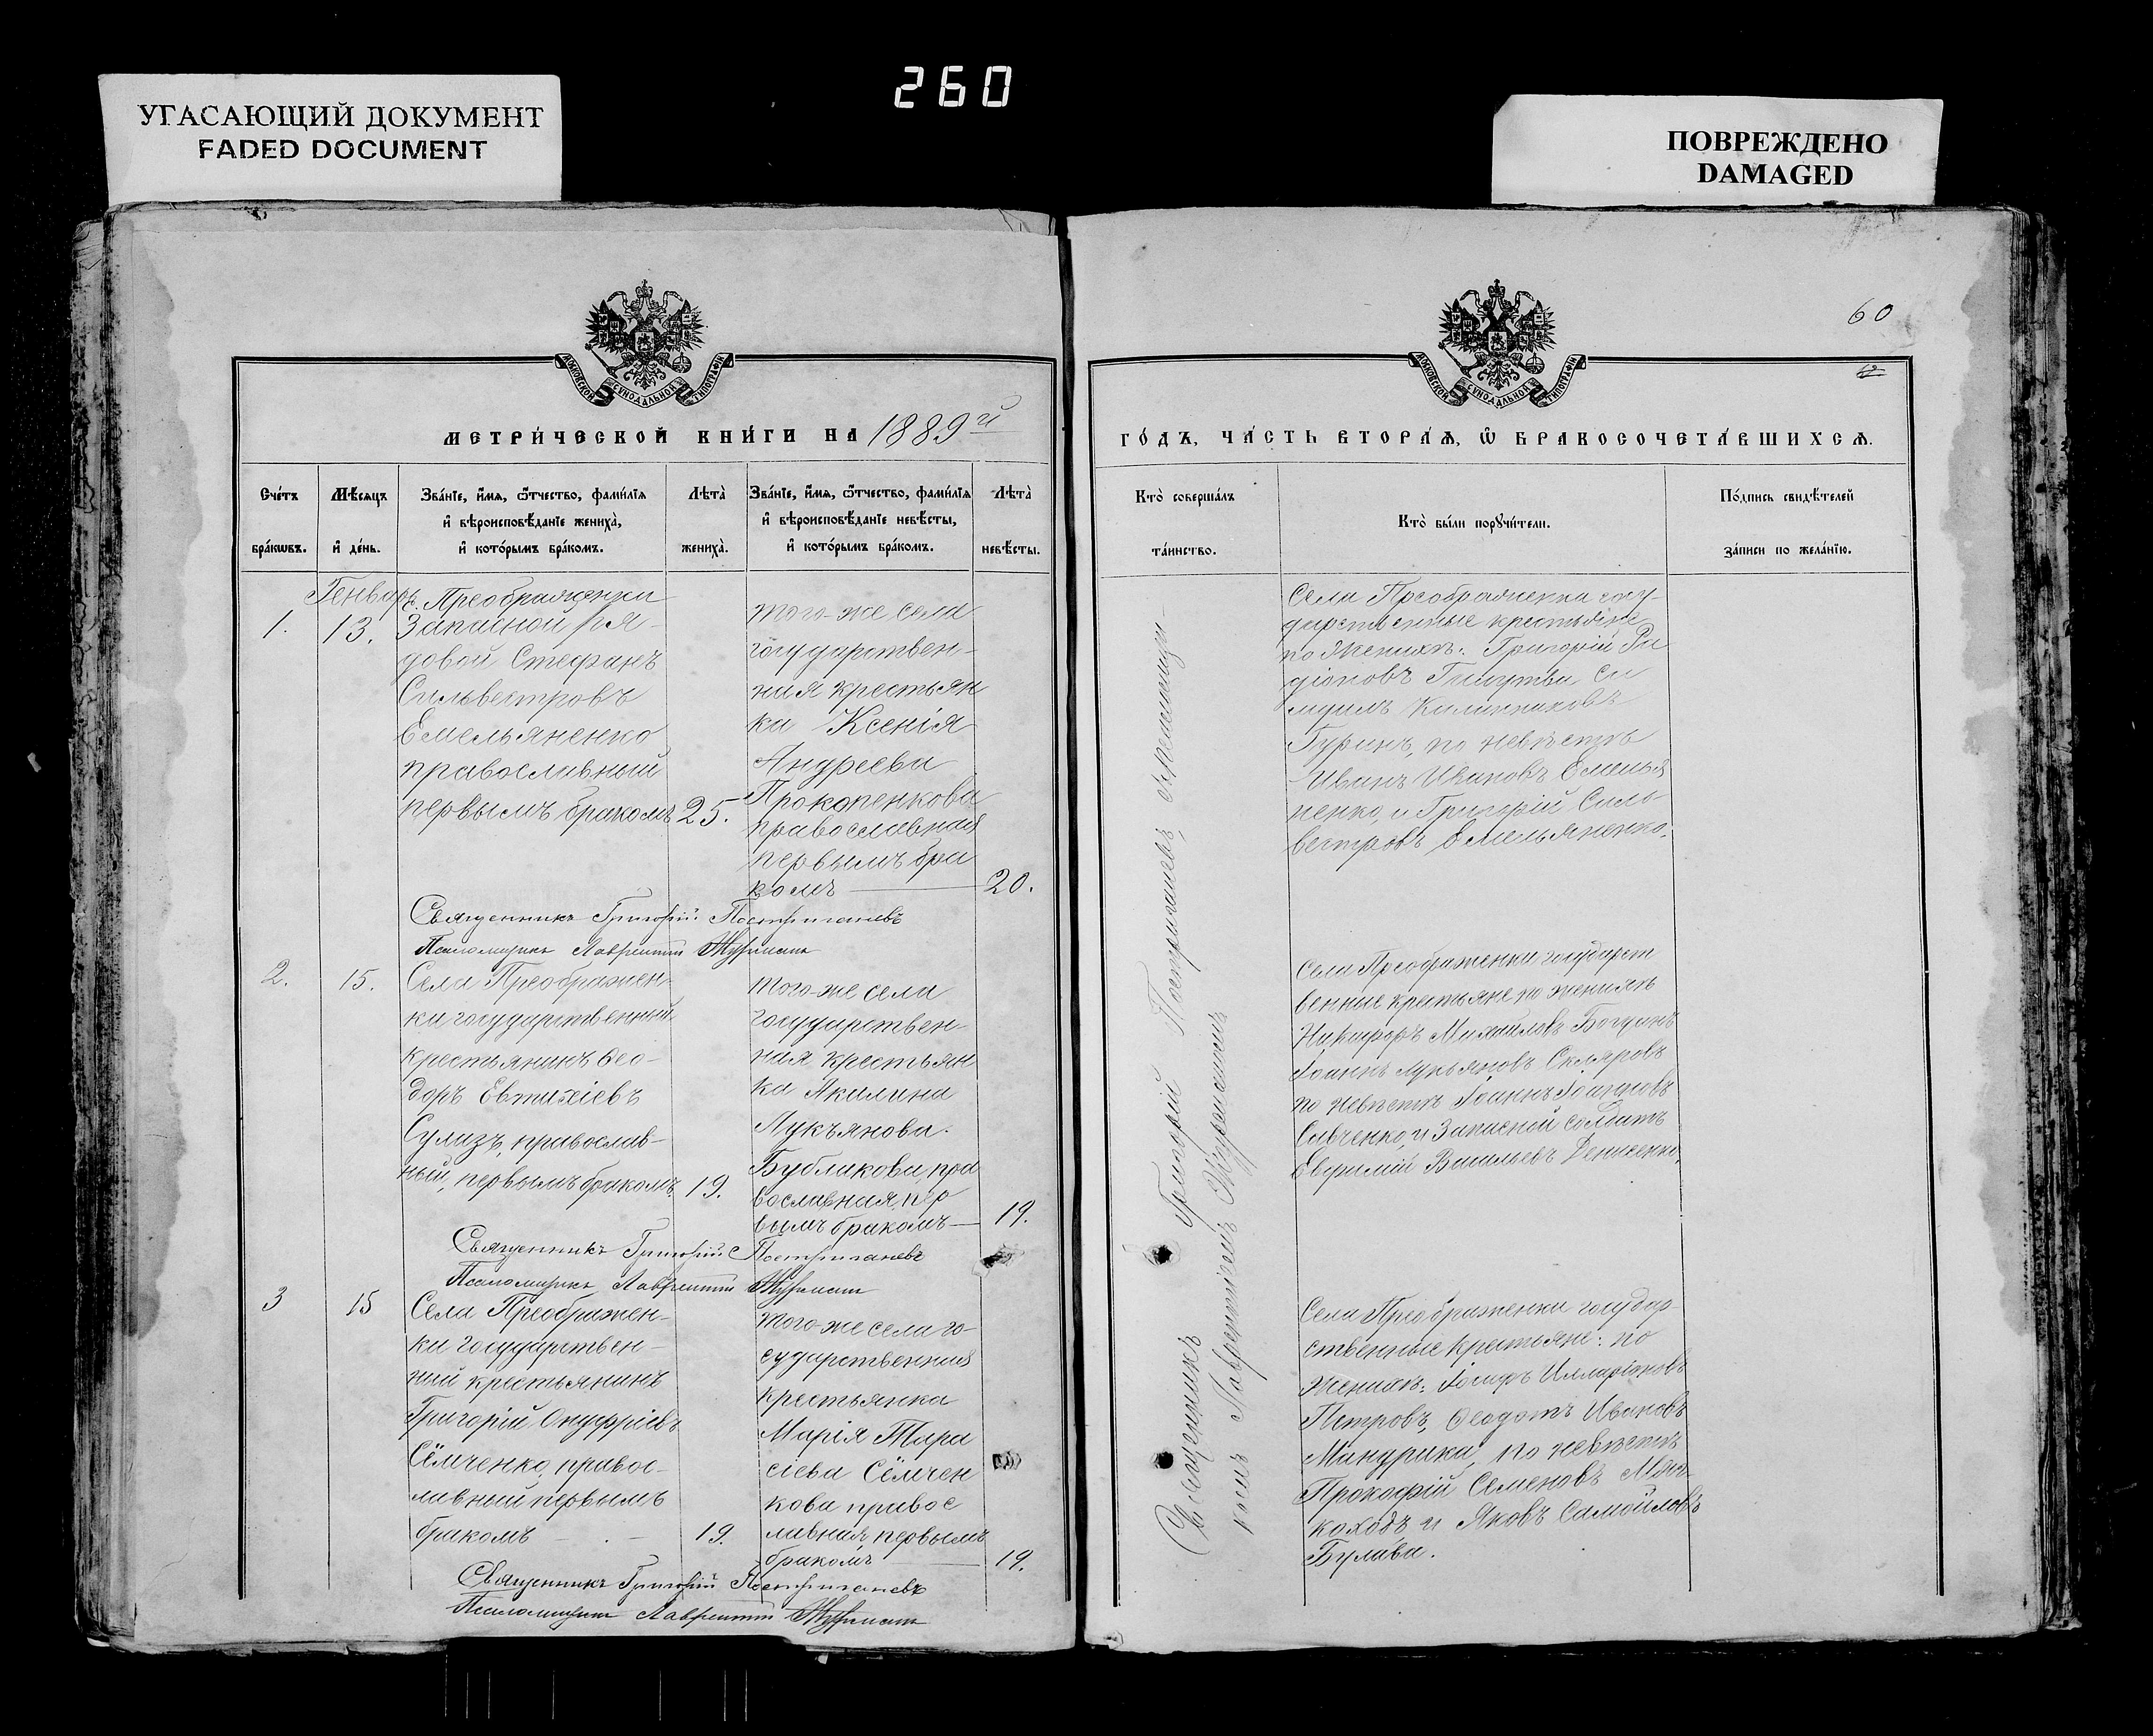 260
УГАСАЮЩИЙ ДОКУМЕНТ
FADED DOCUMENT
ПОВРЕЖДЕНО
DAMAGED
МОСКОВСКОЙ СѴНОДАЛЬНОЙ ТИПОГРАФІИ
МЕТРИ́ЧЕСКОЙ КНИ́ГИ НА 1889й
Сче́тъ бра́кѡвъ.
Мѣ́сяцъ и҆ де́нь.
Зва́нїе, и҆́мѧ, ѻ҆́тчество, фами́лїѧ
и҆ вѣроисповѣ́данїе жениха̀,
и҆ кото́рымъ бра́комъ.
Лѣта̀ жениха̀.
Зва́нїе, и҆́мѧ, ѻ҆́тчество, фами́лїѧ
и҆ вѣроисповѣ́данїе невѣ́сты,
и҆ кото́рымъ бра́комъ.
Лѣта̀ невѣ́сты.
Генварь
1.
13.
с. Преображенки
Запасной ря-
довой Стефанъ
Сильвестровъ
Емельяненко
православный
первымъ бракомъ
25.
того-же села
государствен-
ная крестьян
ка Ксенія
Андреева
Прокопенкова
православная
первымъ бра
комъ
20.
Священникъ Григорій Постригачевъ
Псаломщикъ Лаврентій
2.
15.
Села Преображен-
ки государственный
крестьянинъ Ѳео-
доръ Евтихіевъ
Сулизъ, православ-
ный, первымъ бракомъ
19.
того-же села
государствен-
ная крестьян
ка Акилина
Лукъянова
Бубликова, пра
вославная, пер
вымъ бракомъ
19.
Священникъ Григорій Постригачевъ
Псаломщикъ Лаврентій
3
15
Села Преображен-
ки государствен-
ный крестьянинъ
Григорій Онуфріевъ
Сёмченко, правос-
лавный первымъ
бракомъ
19.
того-же села го-
сударственная
крестьянка
Марія Тара
сіева Сёмчен
кова правос
лавная, первымъ
бракомъ
19.
Священникъ Григорій Постригачевъ
Псаломщикъ Лаврентій
60
МОСКОВСКОЙ СѴНОДАЛЬНОЙ ТИПОГРАФІИ
ГО́ДЪ, ЧА́СТЬ ВТОРА́Ѧ, Ѡ҆ БРАКОСОЧЕТА́ВШИХСѦ.
Кто̀ соверша́лъ
та́инство.
Кто̀ бы́ли порꙋчи́тели.
По́дпись свидѣ́телей
за́писи по жела́нїю.
Священникъ Григорій Постригачевъ
комъ Лаврентіемъ
Села Преображенки госу-
дарственные крестьяне
по женихѣ: Григорій Ра
діоновъ
Калинниковъ
Гуринъ, по невѣстѣ
Иванъ Ивановъ Емелья
ненко, и Григорій Силь-
вестровъ Емельяненко.
Села Преображенки государст
венные крестьяне по женихѣ
Никифоръ Михайловъ
Іоаннъ Лукьяновъ Скляровъ
по невѣстѣ Іоаннъ Іоанновъ
Савченко, и Запасной солдатъ
Евфимій Васильевъ Денисенко.
Села Преображенки государ-
ственные крестьяне: по
женихѣ: Іосифъ Илларіоновъ
Петровъ, Ѳеодотъ Ивановъ
Мандрика, по невѣстѣ
Прокофій Семеновъ
и Яковъ Самойловъ
Булава.